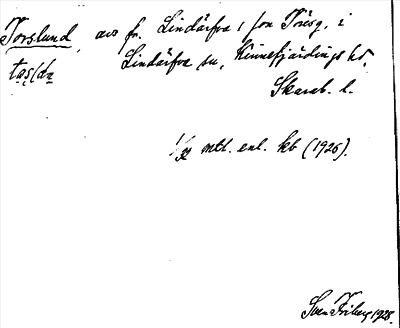 Torslund, avs fr. Lindärfva 1 fon Töresg. i
Lindärfva sn, Kinnefjärdings hd.
Skarab. l.
1/32 mtl. enl. kb (1926).
Sven Friberg 1928.